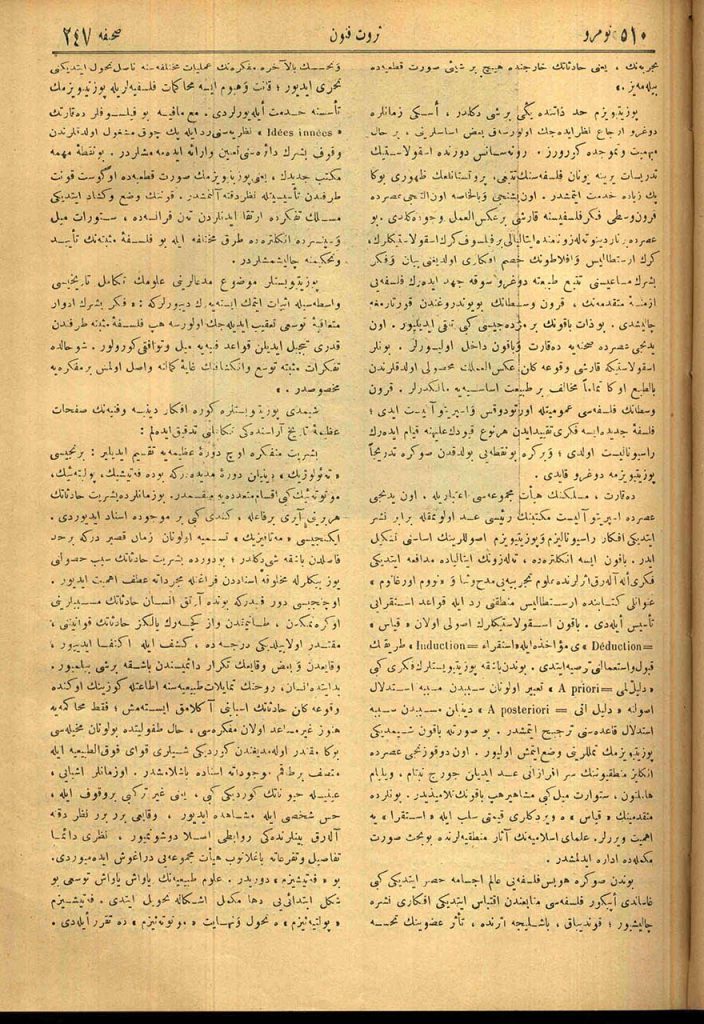 نومرو ٥١٠
ثروت فنون
صحفه ٢٤٧
تجربه‌نك ، یعنی حادثاتك خارجنده هیچ بر شیئی صورت قطعیه‌ده
بیله‌مه‌یز .»
پوزیتیویزم حد ذاتنده یكی بر شی دكلدر ، أسكی زمانلره
دوغرو ارجاع نظر ایده‌جك اولورسه‌ق بعض اساسلرینی ، بر حال
مبهمیت و تموجده كورورز . رونه‌سانس دورنده اسقولاستیك
تدریسات یرینه یونان فلسفه‌سنك تتبعی ، پروتستانلغك ظهوری بوكا
پك زیاده خدمت ایتمشدر . اون بشنجی و بالخاصه اون آلتنجی عصرده
قرون وسطی فكر فلسفیسنه قارشی بر عكس العمل وجوده كلدی . بو
عصرده برناردینو ته‌له‌زو نامنده ایتالیالی بر فیلسوف كرك اسقولاستیكلرك
كرك ارسطالیس و افلاطونك خصم افكاری اولدیغنی بیان و فكر
بشرك مساعیسنی تتبع طبیعته دوغرو سوقه جهد ایده‌رك فلسفه‌یی
ازمنۀ متقدمه‌نك ، قرون وسطانك بویوندروغندن قورتارمغه
چالیشدی . بو ذات باقونك بر مژده‌جیسی كبی تلقی ایدیلیور . اون
یدنجی عصرده صحنه‌یه ده‌قارت و باقون داخل اولیورلر . بونلر
اسقولاستیكه قارشی وقوعه كلن عكس العملك محصولی اولدقلرندن
بالطبع اوكا تماماً مخالف بر طبیعت اساسیه‌یه مالكدرلر . قرون
وسطانك فلسفه‌سی عمومیتله اورتودوقس و اسپریتوآلیست ایدی ؛
فلسفۀ جدیده ایسه فكری تقیید ایدن هر نوع قیودك علیهنه قیام ایده‌رك
راسیونالیست اولدی ؛ و بركره بو نقطه‌یی بولدقدن صوكره تدریجاً
پوزیتیویزمه دوغرو قایدی .
ده‌قارت ، مسلكنك هیأت مجموعه‌سی اعتباریله . اون یدنجی
عصرده اسپریتوآلیست مكتبنك رئیسی عد اولنمقله برابر نشر
ایتدیكی افكار راسیونالیزم و پوزیتیویزم اصوللرینك اساسنی تشكیل
ایدر . باقون ایسه انكلتره‌ده ، ته‌له‌زونك ایتالیاده مدافعه ایتدیكی
فكری أله آله‌رق اثرلرنده علوم تجریبیه‌یی مدح و ثنا و « نووم اورغانوم »
عنوانلی كتابنده ارسطالیس منطقنی رد ایله قواعد استقرائی
تأسیس أیله‌دی . باقون اسقولاستیكلرك اصولی اولان « قیاس »
=Déduction » ی مؤاخذه ایله « استقراء =Induction » طریقنك
قبول و استعمالنی توصیه ایتدی . بوندن باشقه پوزیتیویستلرك فكری كبی
« دلیل لمی = A priori » تعبیر اولونان سببدن مسببه استدلال
اصولنه « دلیل انی = A posteriori » دینیلن مسببدن سببه
استدلال قاعده‌سنی ترجیح ایتمشدر . بو صورتله باقون شیمدیكی
پوزیتیویزمك تمللرینی وضع ایتمش اولیور . اون دوقوزنجی عصرده
انكلیز منطقیوننك سر افرازانی عد ایدیلن جورج بنتام ، ویلیام
هاملتون ، ستوارت میل كبی مشاهیر هب باقونك تلامیذیدر . بونلرده
متقدمینك « قیاس » ه ویردكلری قیمتی سلب ایله « استقراء » یه
اهمیت ویررلر . علمای اسلامیه‌نك آثار منطقیه‌لرنده بو بحث صورت
مكمله‌ده اداره ایدلمشدر .
بوندن صوكره هوبس فلسفه‌یی عالم اجسامه حصر ایتدیكی كبی
غاساندی أپیكور فلسفه‌سی منابعندن اقتباس ایتدیكی افكاری نشره
چالیشیور ؛ قوندیباق ، باشلیجه اثرنده ، تأثر عضوینك تحسسه
و تحسسك بالآخره مفكره‌نك عملیات مختلفه‌سنه ناصل تحول ایتدیكنی
تحری ایدیور ؛ قانت و هیوم ایسه محاكمات فلسفیه‌لریله پوزیتیویزمك
تأسسنه خدمت أیله‌یورلردی . مع مافیه بو فیلسوفلر ده‌قارتك
« Idées innées » نظریه‌سنی رد ایله پك چوق مشغول اولدقلرندن
وقوف بشرك دائره‌سنی تعیین و ارائه ایده‌مه‌مشلردر . بو نقطۀ مهمه
مكتب جدیدك ، یعنی پوزیتیویزمك صورت قطعیه‌ده اوگوست قونت
طرفندن تأسیسیله نظر دقته آلنمشدر . قونتك وضع و كشاد ایتدیكی
مسلك تفكرده ارتقا ایدنلردن تەن فرانسه‌ده ، ستوارت میل
و سپنسرده انكلتره‌ده طرق مختلفه ایله بو فلسفۀ مثبته‌نك تأیید
و تحكیمنه چالیشمشلردر .
پوزیتیویستلر موضوع مدعالرینی علومك تكامل تاریخیسی
واسطه‌سیله اثبات ایتمك ایسته‌یه‌رك دییورلركه : « فكر بشرك ادوار
متعاقبۀ توسعی تعقیب ایدیله‌جك اولورسه هپ فلسفۀ مثبته طرفندن
قدری تبجیل ایدیلن قواعد فنیه‌یه میل و توافقی كورولور . شو حالده
تفكرات مثبته توسع و انكشافك غایۀ كمالنه واصل اولمش بر مفكره‌یه
مخصوصدر . »
شیمدی پوزیتیویستلره كوره افكار دینیه و فنیه‌نك صفحات
عظیمۀ تاریخ آراسنده‌كی تكاملنی تدقیق ایده‌لم :
بشریت متفكره اوچ دورۀ عظیمه‌یه تقسیم ایدیلیر : برنجیسی
« ته‌ئولوژیك » دینیلن دورۀ مدیده‌دركه بوده فه‌تیشیك، پولیته‌ئیك،
مونوته‌ئیك كبی اقسام متعدده‌یه منقسمدر. بو زمانلرده بشریت حادثاتك
هر برینی آیری بر فاعله ، كندی كبی بر موجوده اسناد ایدیوردی .
ایكنجیسی « مه‌تافیزیك » تسمیه اولونان زمان قصیر دركه بر حد
فاصلدن باشقه شی دكلدر ؛ بو دورده بشریت حادثاتك سبب حصولنی
یوز بیكلرله مخلوقه اسناددن فراغتله مجرداته عطف اهمیت ایدیور .
اوچنجیسی دور فنیدركه بونده آرتق انسان حادثاتك مسببلرینی
اوكره‌نمكدن ، طانیمقدن واز كچه‌رك یالكز حادثاتك قوانیننی ،
مقتدر اولابیلدیكی درجه‌ده ، كشف ایله اكتفا ایدییور ،
وقایعدن و بعض وقایعك تكرار دائمیسندن باشقه برشی بیلمیور .
بدایتده انسان، روحنك تمایلات طبیعیه‌سنه اطاعتله كوزینك اوكنده
وقوعه كلن حادثاتك اسبابنی آكلامق ایسته‌مش ؛ فقط محاكمه‌یه
هنوز غیر مساعد اولان مفكره‌سی ، حال طفولیتده بولونان مخیله‌سی
بوكا مقتدر اوله‌مدیغندن كوردیكی شیلری قوای فوق‌الطبیعیه ایله
متصف بر طاقم موجوداته اسناده باشلامشدر . او زمانلر اشیایی ،
عینیله حیواناتك كوردیكی كبی ، یعنی غیر تركیبی بر وقوف ایله ،
حس شخصی ایله مشاهده ایدیور ، وقایعی برر برر نظر دقته
آله‌رق بینلرنده‌كی روابطی اصلا دوشونمیور ، نظری دائما
تفاصیل و تفرعاته باغلانوب هیأت مجموعه‌یی دراغوش ایده‌میوردی.
بو « فه‌تیشیزم » دوریدر . علوم طبیعیه‌نك یاواش یاواش توسعی بو
شكل ابتدائی‌یی دها مكمل اشكاله تحویل ایتدی . فه‌تیشیزم
« پولیته‌ئیزم » ه تحول و نهایت « مونوته‌ئیزم » ده تقرر أیله‌دی .